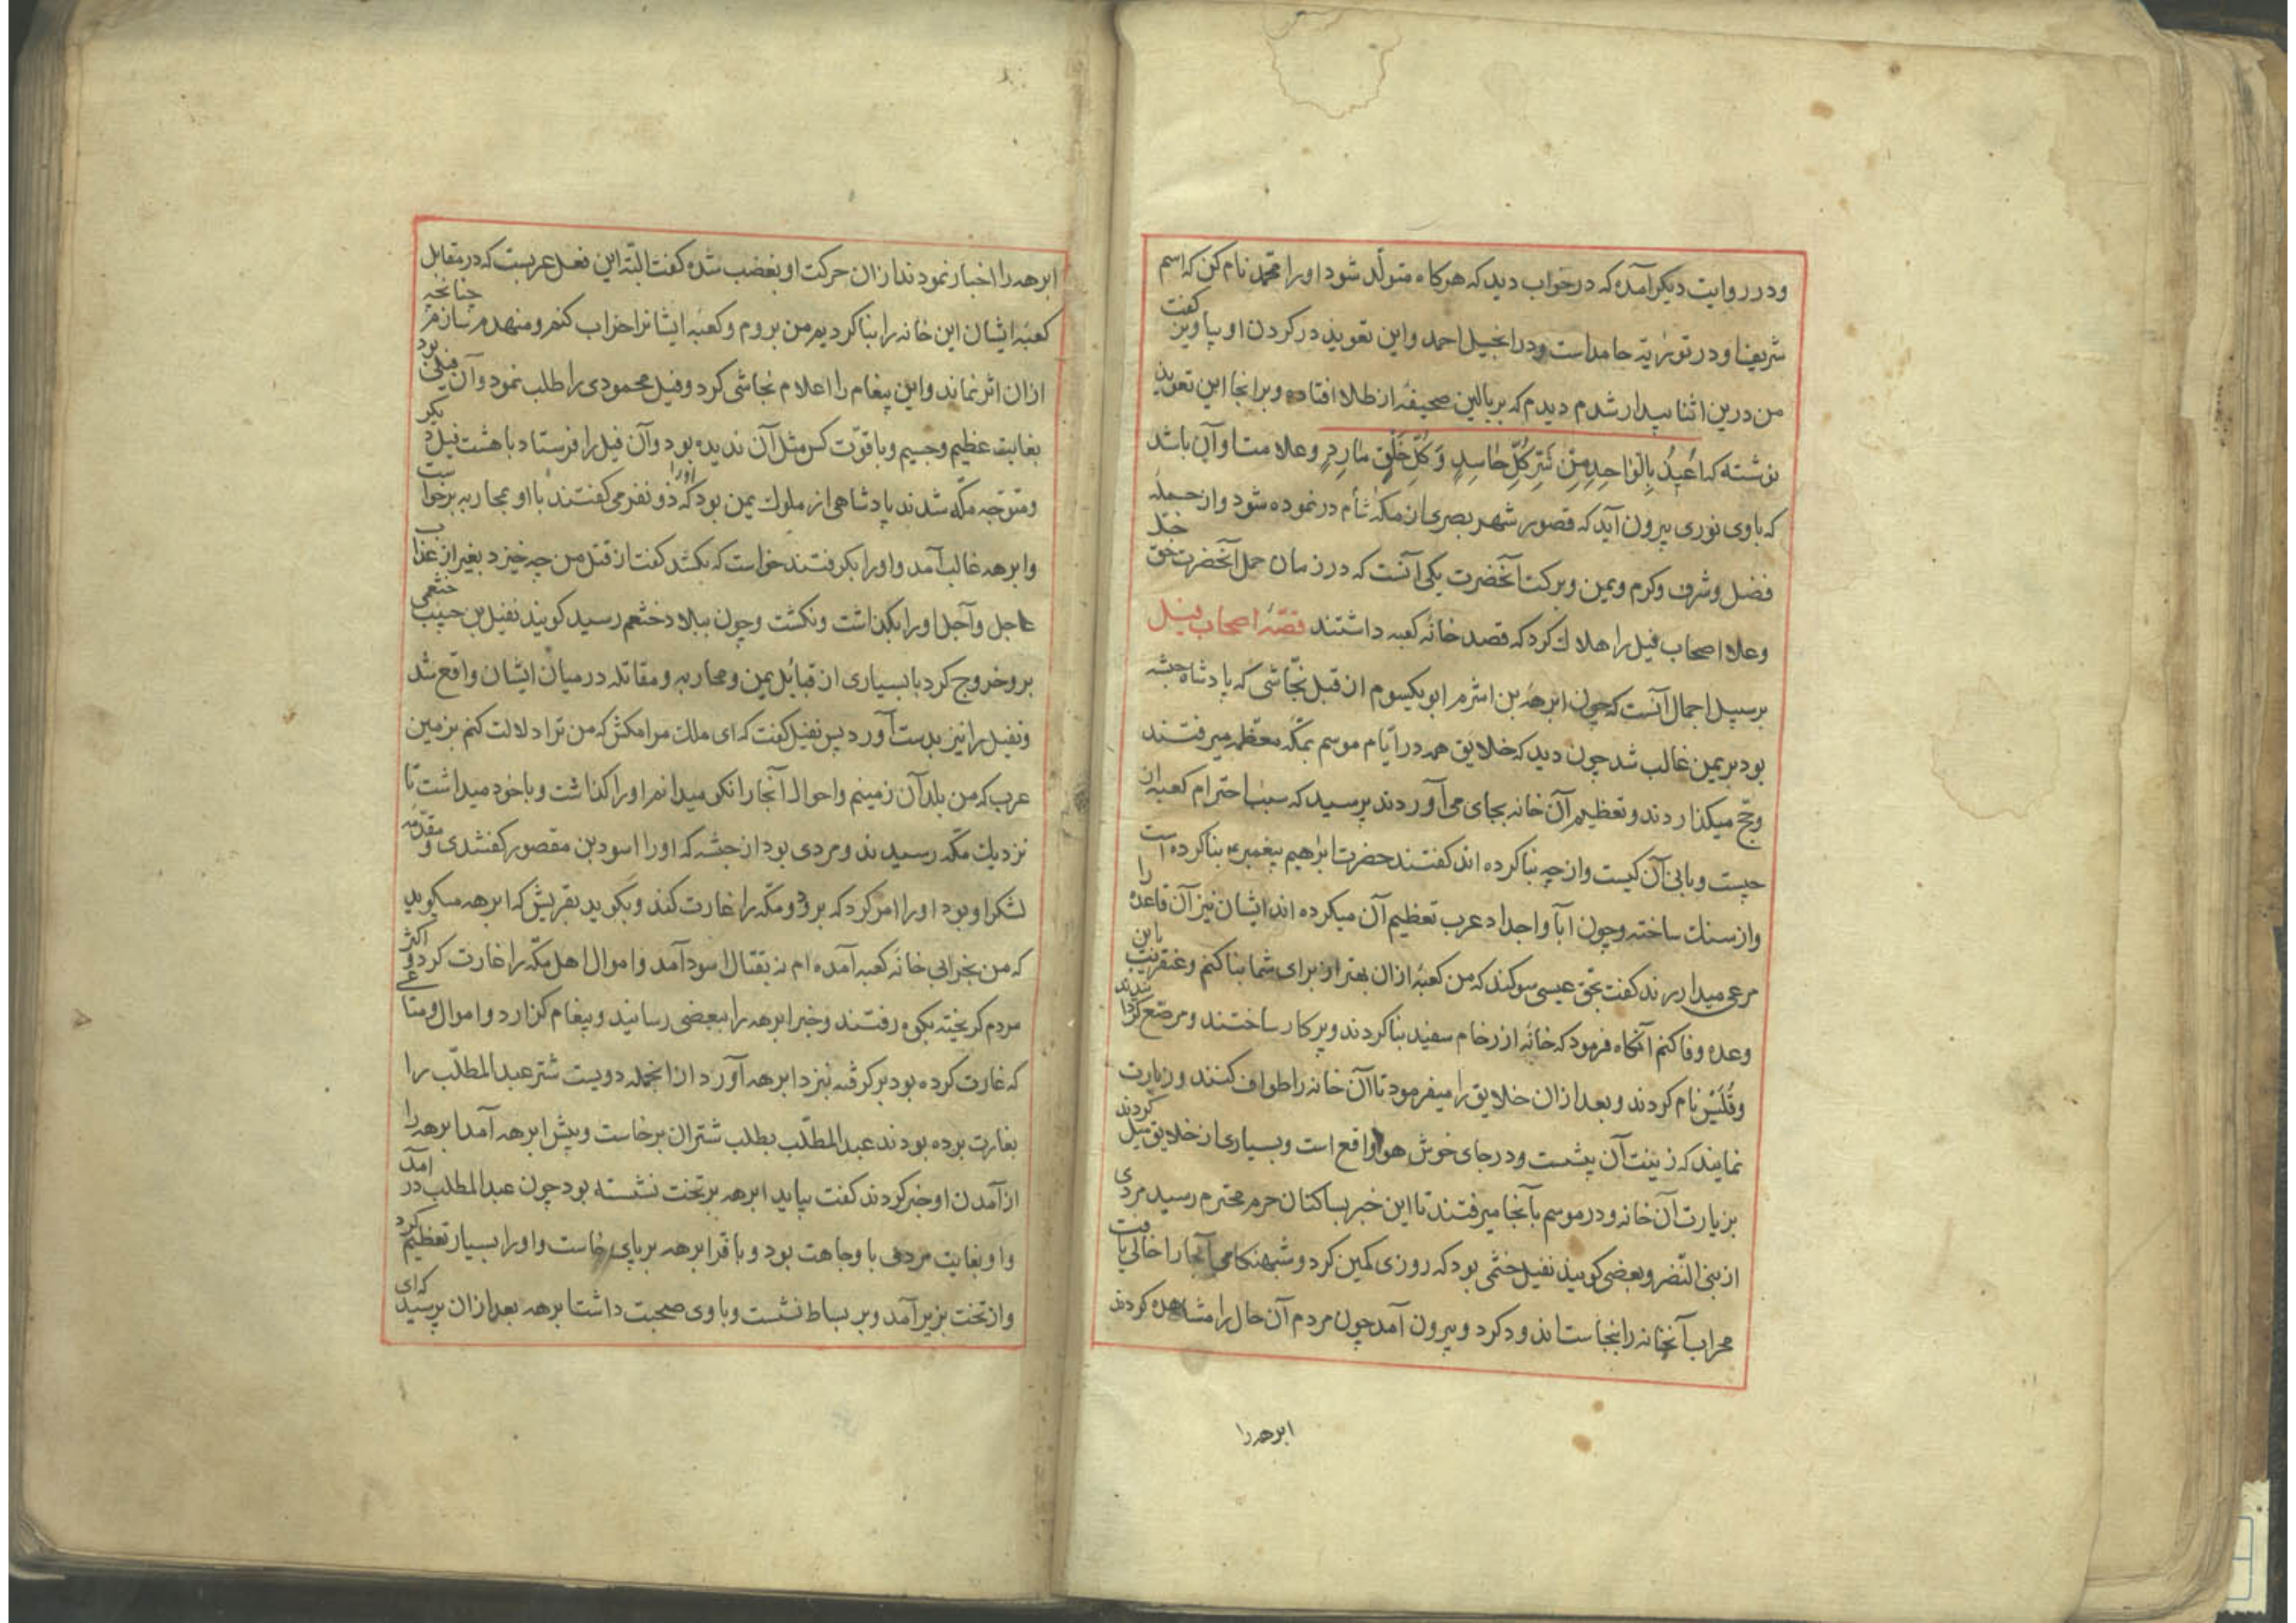 ودر روایت دیکر آمده که در خواب دید که هرکاه متولّد شود او را محمّد نام کن که اسم
شریف او در توریة حامد است ودر انجیل احمد واین تعویذ در کردن او بیاویز کفت
من درین اثنا بیدار شدم دیدم که بر بالین صحیفهٔ از طلا افتاده وبر انجا این تعویذ
نوشته که اُعیذُ بِالوَاحِدِ مِنْ شَرِّ کُلِّ حَاسِدٍ وَ کُلِّ خَلْقٍ مَارِدٍ وعلامت او آن باشد
که باوی نوری بیرون آید که قصور شهر بصری از مکهٔ شام در نموده شود واز جمله
فضل وشرف وکرم ویمن وبرکت آنحضرت یکی آنست که در زمان حمل آنحضرت حق جلّ
وعلا اصحاب فیل را هلاک کرد که قصد خانهٔ کعبه داشتند قصّهٔ اصحاب فیل
برسبیل اجمال آنست که چون ابرهه بن اشرم ابو یکسوم از قبل نجّاشی که پادشاه حبشه
بود بر یمن غالب شد چون دید که خلایق همه در ایّام موسم بمکّه معظمه میرفتند
وحجّ میکذاردند وتعظیم آن خانه بجای می آوردند پرسید که سبب احترام کعبه از
چیست وبانی آن کیست واز چه بنا کرده اند کفتند حضرت ابراهیم پیغمبر بنا کرده است
واز سنک ساخته وچون آبا واجداد عرب تعظیم آن میکرده اند ایشان نیز آن قاعده را
مرعی میدارند کفت بحق عیسی سوکند که من کعبهٔ ازان بهتر از برای شما بنا کنم وعنقریب باین
وعده وفا کنم آنکاه فرمود که خانهٔ از رخام سفید بنا کردند وپرکار ساختند ومرصّع کردا نیدند
وقُلَّیْس نام کردند وبعد ازان خلایق را میفرمود تا آن خانه را طواف کنند وزیارت
نمایند که زینت آن بیشست ودر جای خوش هوا واقع است وبسیاری از خلایق میل کردند
بزیارت آن خانه ودر موسم بآنجا میرفتند تا این خبر بساکنان حرم محترم رسید مردی
از بنی النّضر وبعضی کویند نفیل خثمی بود که روزی کمین کرد وشبهنکامی آنجا را خالی یافت
محراب آنخانه را بنجاست اندود کرد وبیرون آمد چون مردم آن حال را مشاهده کردند
ابرهه را
ابرهه را اخبار نمودند ازان حرکت او بغضب شده کفت البته این فعل عربست که در مقابل
کعبه ایشان این خانه را بنا کردیم من بروم وکعبه ایشانرا خراب کنم ومنهدم سازم چنانچه
ازان اثر نماند واین پیغام را اعلام نجاشی کرد وفیل محمودی را طلب نمود وآن فیلی بود
بغایت عظیم وجسیم وبا قوّت کس مثل آن ندیده بود وآن فیل را فرستاد با هشت فیل دیکر
ومتوجه مکّه شدند پادشاهی از ملوک یمن بود که او را ذونفر می کفتند با او بمحاربه برخواست
وابرهه غالب آمد واو را بکرفتند خواست که بکشد کفت از قتل من چه خیزد بغیر از عذاب
عاجل وآجل او را بکذاشت ونکشت وچون ببلاد خثعم رسید کویند نفیل بن حبیب خثعمی
برو خروج کرد با بسیاری از قبائل یمن ومحاربه ومقاتله درمیان ایشان واقع شد
ونفیل را نیز بدست آورد پس نفیل کفت که ای ملک مرا مکش که من ترا دلالت کنم بزمین
عرب که من بلد آن زمینم واحوال آنجا را نکو میدانم او را کذاشت وبا خود میداشت تا
نزدیک مکّه رسیدند ومردی بود از حبشه که او را اسود بن مقصور کفتندی ومقدّمه
لشکر او بود او را امر کرد که برو ومکّه را غارت کند وبکوید بقریش که ابرهه میکوید
که من بخرابی خانه کعبه آمده ام نه بقتال اسود آمد واموال اهل مکّه را غارت کرد و اکثر
مردم کریخته بکوه رفتند وخبر ابرهه را ببعضی رسانید وپیغام کزارد واموال ومتاعی
که غارت کرده بود بر کرفته نزد ابرهه آورد ازانجمله دویست شتر عبدالمطلّب را
بغارت برده بودند عبدالمطلّب بطلب شتران برخاست وپیش ابرهه آمد ابرهه را
از آمدن او خبر کردند کفت بیاید ابرهه بر تخت نشسته بود چون عبدالمطلب در آمد
واو بغایت مردی با وجاهت بود وبا فر ابرهه بر پای خاست واو را بسیار تعظیم کرد
واز تخت بزیر آمد وبر بساط نشست وباوی صحبت داشت ابرهه بعد ازان پرسید که ای